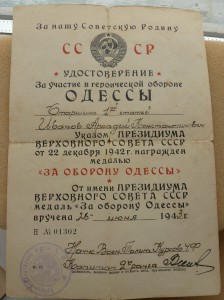 За нашу Советскую Родину
СС СР
УДОСТОВЕРЕНИЕ
За участие в героической обороне
ОДЕССЫ
Старшина 1ой статьи
Иванов Аркадий Константинович
Указом ПРЕЗИДИУМА
ВЕРХОВНОГО СОВЕТА СССР
от 22 декабря 1942 г. награжден
медалью
«ЗА ОБОРОНУ ОДЕССЫ»
От имени ПРЕЗИДИУМА
ВЕРХОВНОГО СОВЕТА СССР
медаль «За оборону Одессы»
вручена 26 июня 1943 г.
Н № 01302
Нач Воен Полит Курсов ЧФ
Капитан 2 ранга